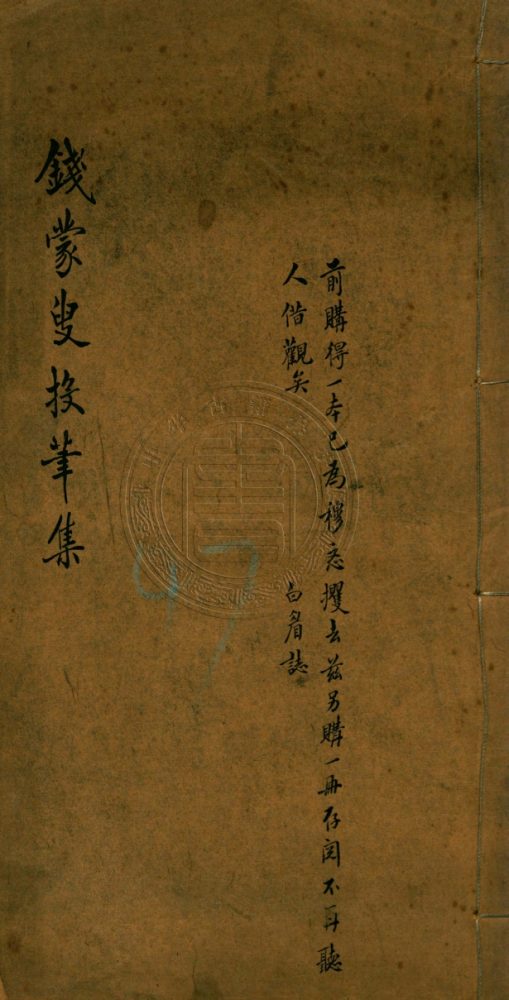 前購得一本已為穆忞攫去茲另購一冊存閱不再聽
人借觀矣
白眉誌
錢蒙叟投筆集
47